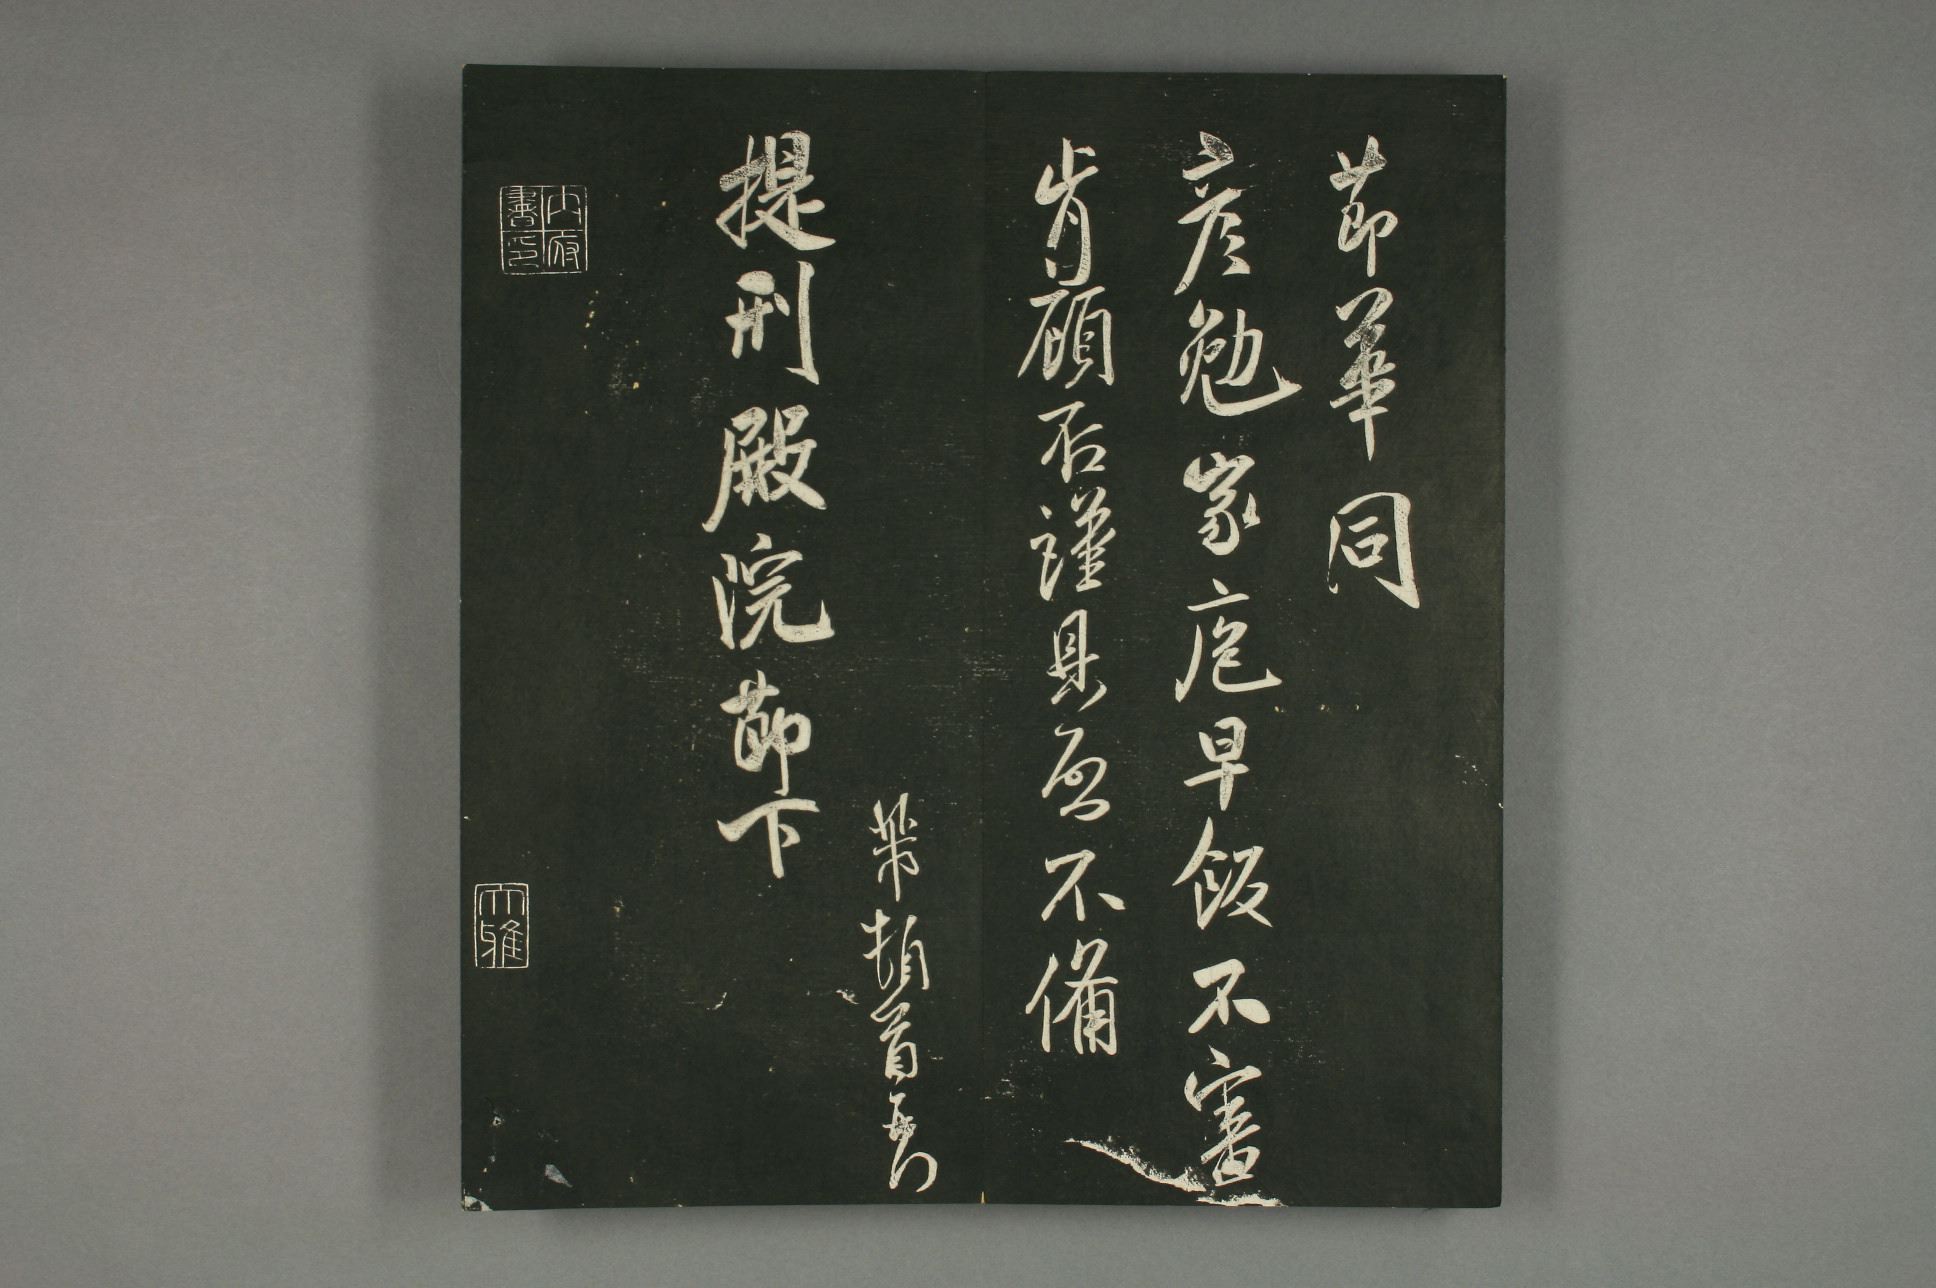 節華同
彥勉家庖早飯不審
肯顧否謹具啟不備
芾頓首再拜
提刑殿院節下
內府書印
大雅